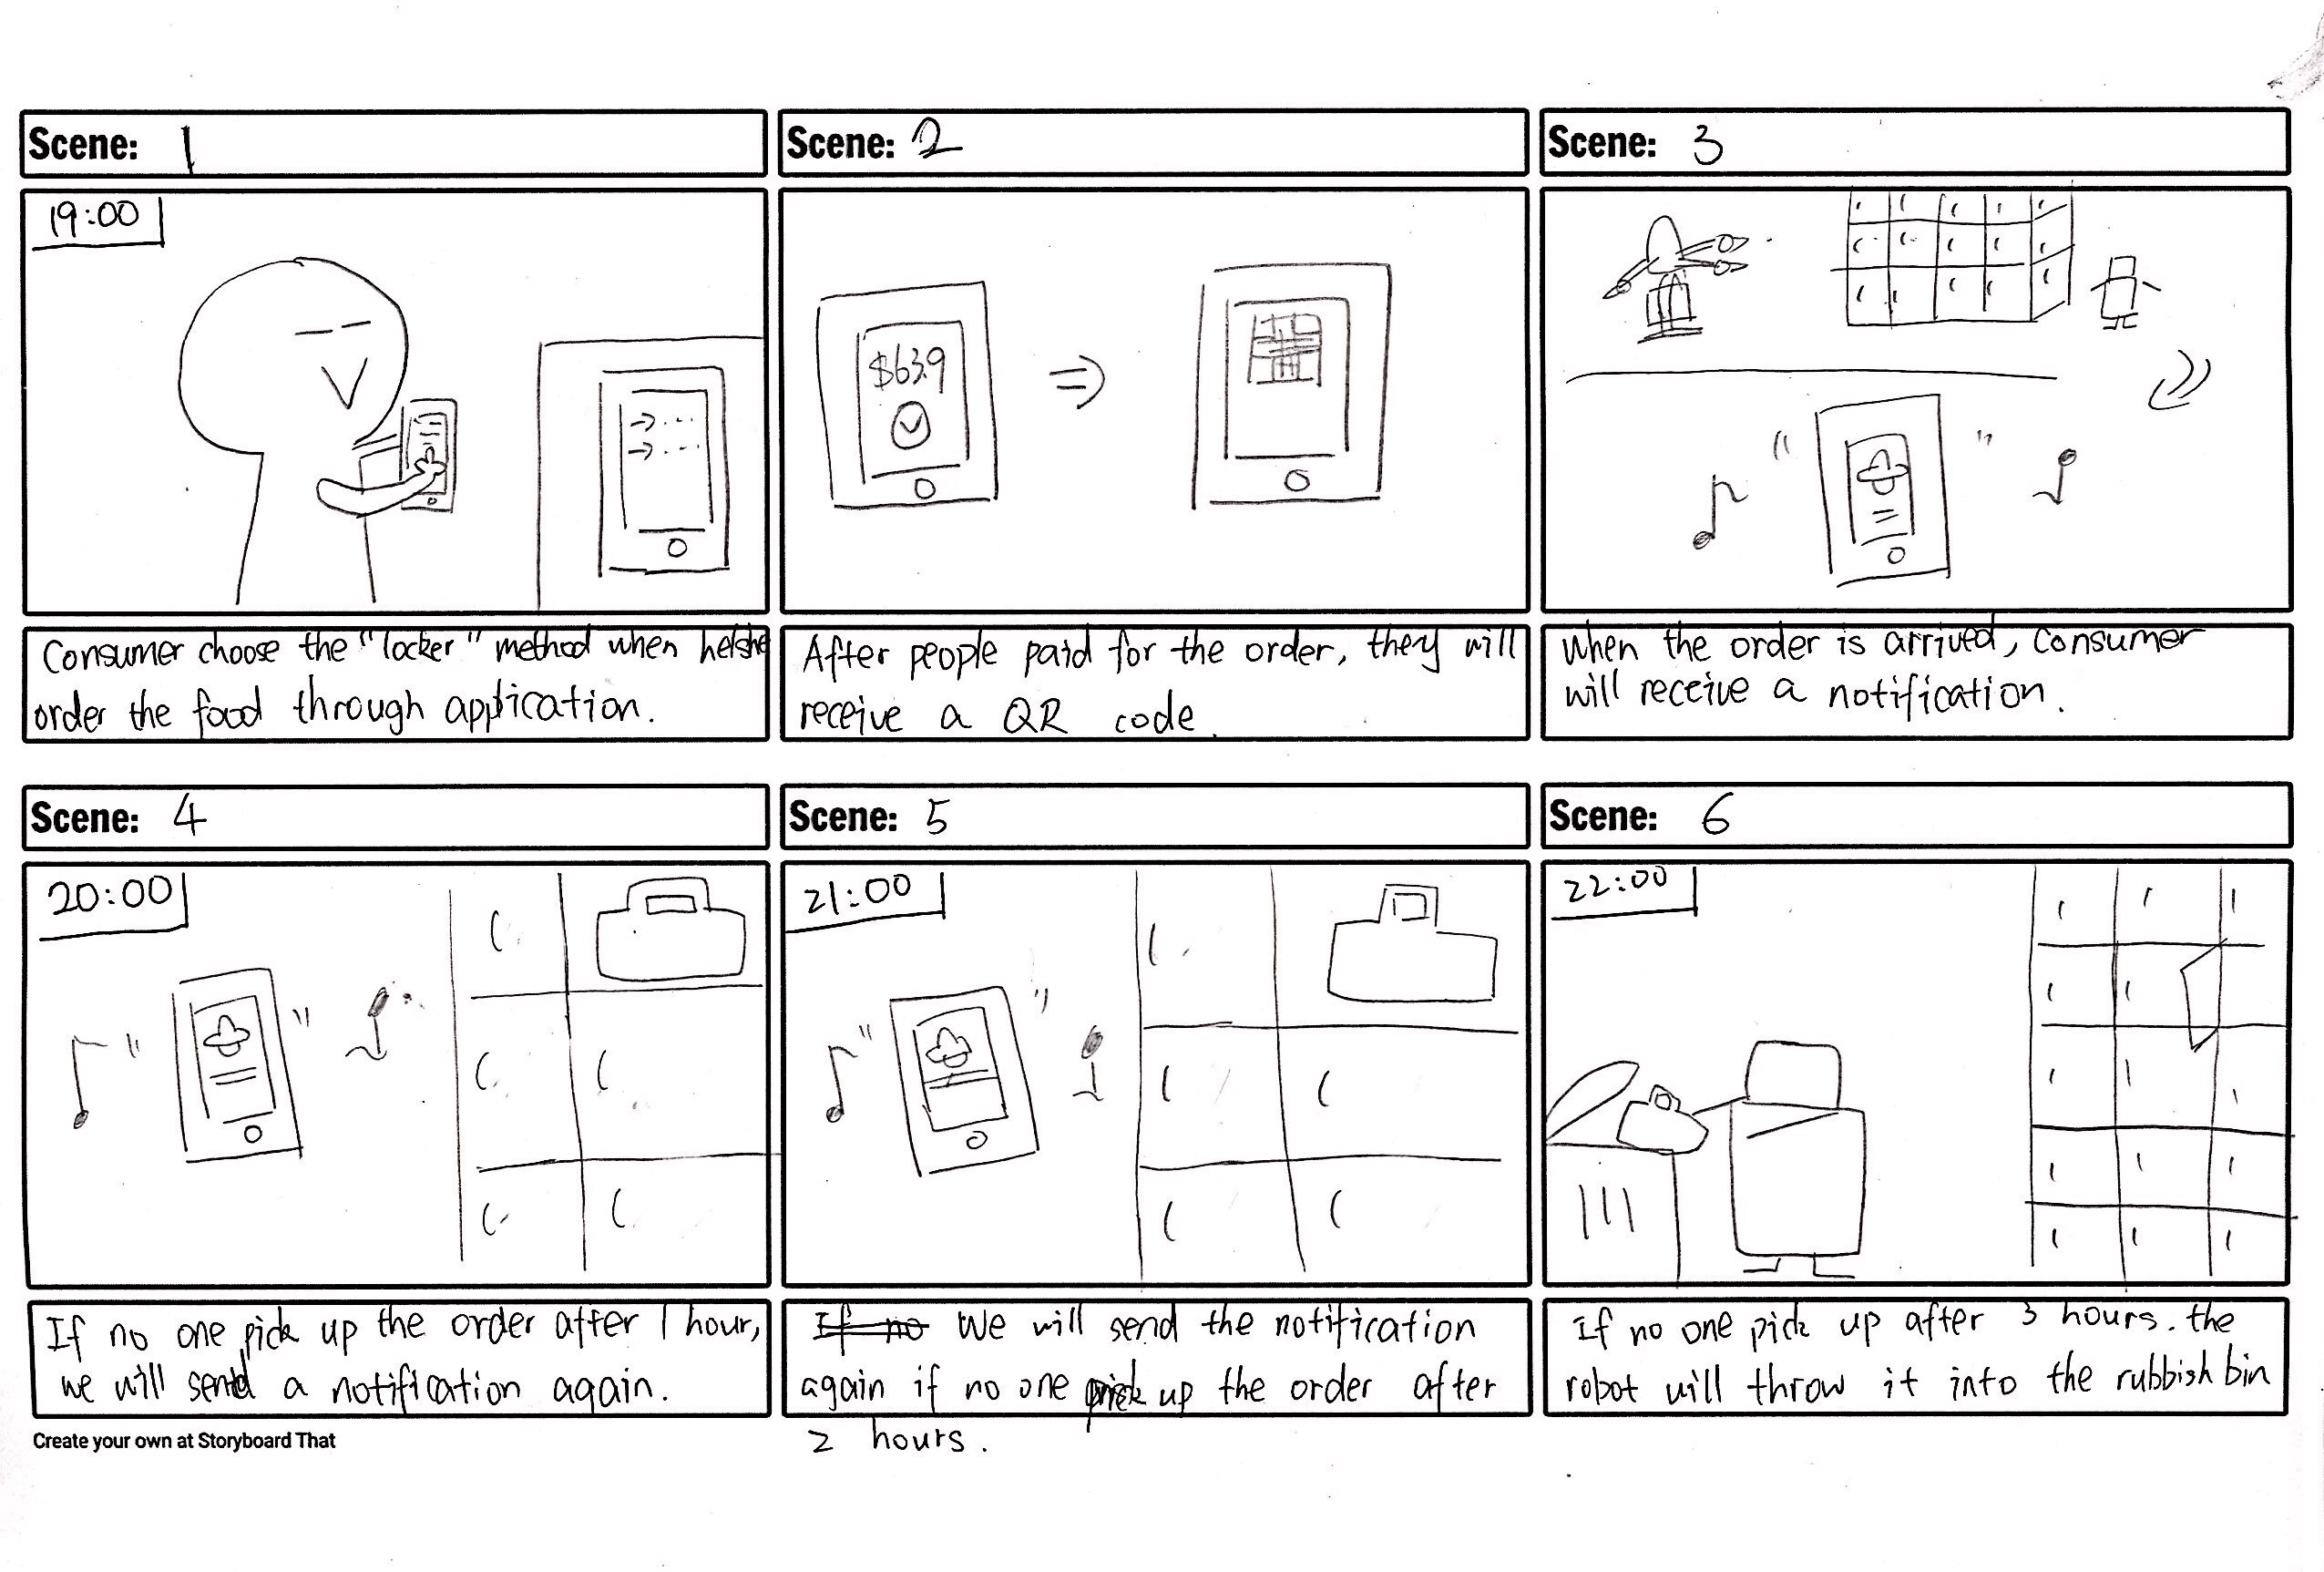 Scene: 1
19:00
Consumer choose the "locker" method when he/she
order the food through application.
Scene: 2
$63.9
After people paid for the order, they will
receive a QR code.
Scene: 3
When the order is arrived, consumer
will receive a notification.
Scene: 4
20:00
If no one pick up the order after 1 hour,
we will send a notification again.
Scene: 5
21:00
If no We will send the notification
again if no one pick up the order after
2 hours.
Scene: 6
22:00
If no one pick up after 3 hours. the
robot will throw it into the rubbish bin
Create your own at Storyboard That